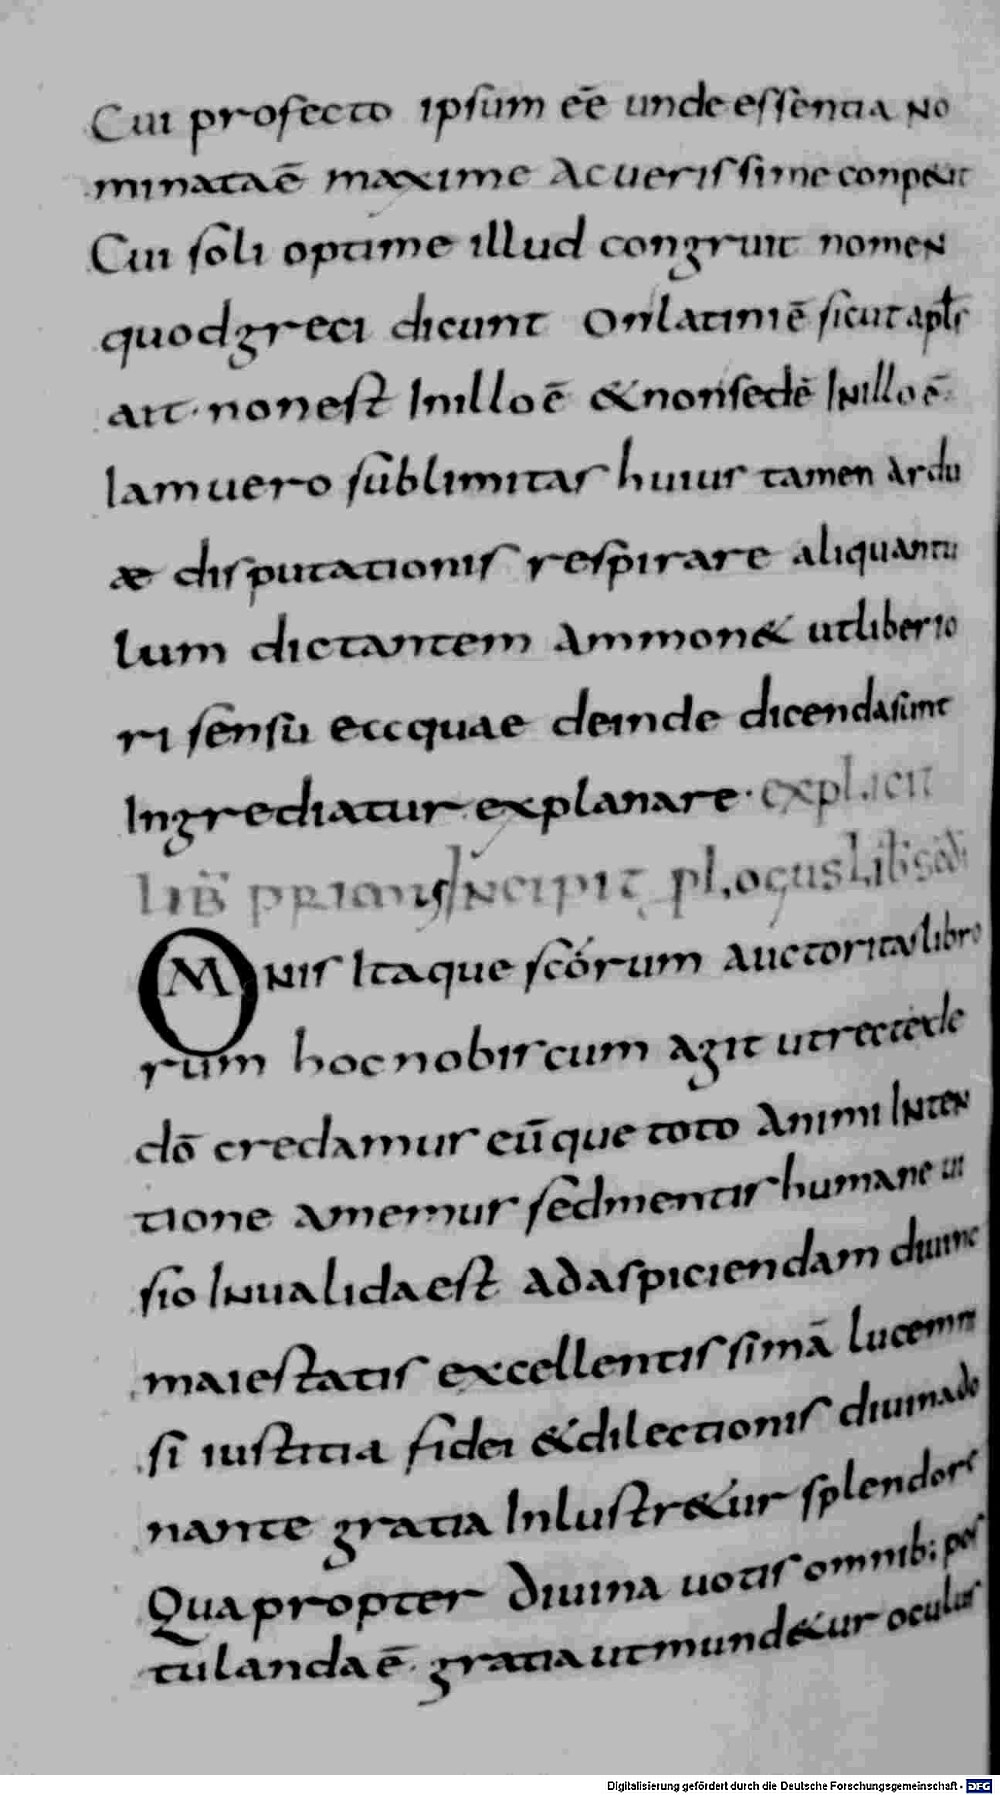 Cui profecto ipsum eē unde essentia no
minataē maxime ac uerissime conpetit
Cui soli optime illud congruit nomen
quod greci dicunt On latiniē sicut apl̄s
ait· non est In illo ē & non sed ē In illo ē·
Iam uero sublimitas huius tamen ardu
æ disputationis respirare aliquantu
lum dictantem ammon& ut liberio
ri sensu eccquae deinde dicenda sunt
Ingrediatur explanare· explicit
lib̄ primus Incipit
Omnis Itaque scōrum auctoritas libro
rum hoc nobis cum agit ut recte de
dō credamus eūque toto animi Inten
tione amemus sed mentis humane ui
sio Inualida est ad aspiciendam diuine
maiestatis excellentissimā lucem ni
si iustitia fidei & dilectionis diuina do
nante gratia Inlustr&ur splendore
Quapropter diuina uotis omnib; pos
tulandaē· gratia ut mund&ur oculus
Digitalisierung gefördert durch die Deutsche Forschungsgemeinschaft - DFG